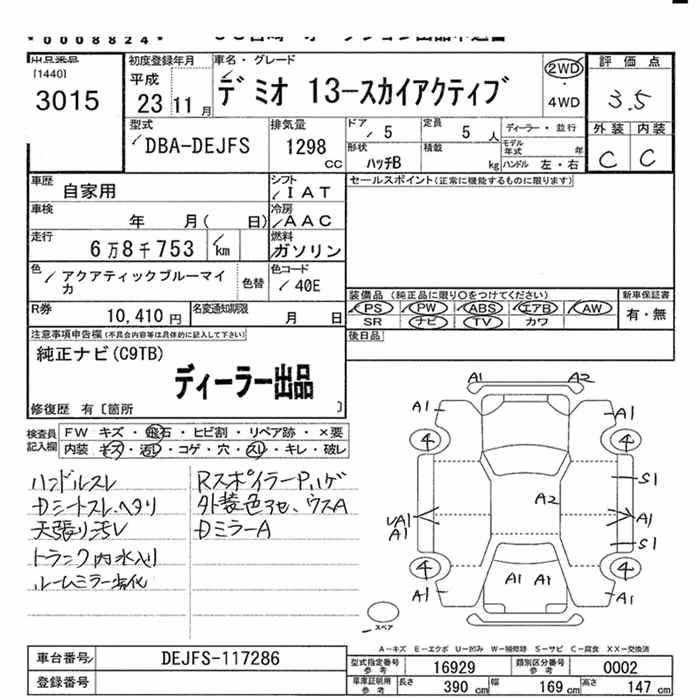 *0008824*
[1440]
3015
初度登録年月
平成
23年11月
車名・グレード
デミオ 13-スカイアクティブ
2WD
・
4WD
評価点
3.5
外装 内装
C C
型式
DBA-DEJFS
排気量
1298
CC
ドア
5
定員
5人
形状
ハッチB
積載
kg
ディーラー・並行
モデル年式 年
ハンドル 左・右
車歴
自家用
シフト
IAT
車検
年 月( 日)
冷房
AAC
走行
6万8千753 km
燃料
ガソリン
色
アクアティックブルーマイカ
色替
色コード
40E
R券
10,410円
名変通知期限
月 日
セールスポイント(正常に機能するものに限ります)
装備品(純正品に限り○をつけてください)
PS PW ABS エアB AW
SR ナビ TV カワ
新車保証書
有・無
後日品
注意事項申告欄(不具合内容等は具体的に記入して下さい)
純正ナビ(C9TB)
ディーラー出品
修復歴 有〔箇所 〕
検査員記入欄
FW キズ・飛石・ヒビ割・リペア跡・×要
内装 キズ・汚レ・コゲ・穴・スレ・キレ・破レ
ハンドルスレ
Dシートスレ、ヘタリ
天張り汚レ
トランク内水入り
ルームミラー劣化
RスポイラーPハゲ
外装色アセ、ウスA
DミラーA
A1 A2
A1 A1
4 4
S1
A2
UA1 A1
A1
S1
4 4
A1 A1
A1 A1
スペア
A-キズ E-エクボ U-凹み W-補修跡 S-サビ C-腐食 XX-交換済
車台番号
DEJFS-117286
登録番号
型式指定番号
参考
16929
類別区分番号
参考
0002
車庫証明用
参考
長さ 390 cm 幅 169 cm 高さ 147 cm